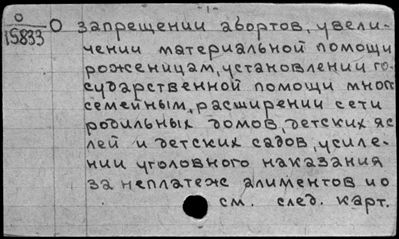 -1-
О
15833
О запрещении абортов, увели-
чении материальной помощи
роженицам, установлении го-
сударственной помощи много
семейным, расширении сети
родильных домов, детских яс
лей и детских садов, усиле-
нии уголовного наказания
за неплатеж алиментов и о
см. след. карт.